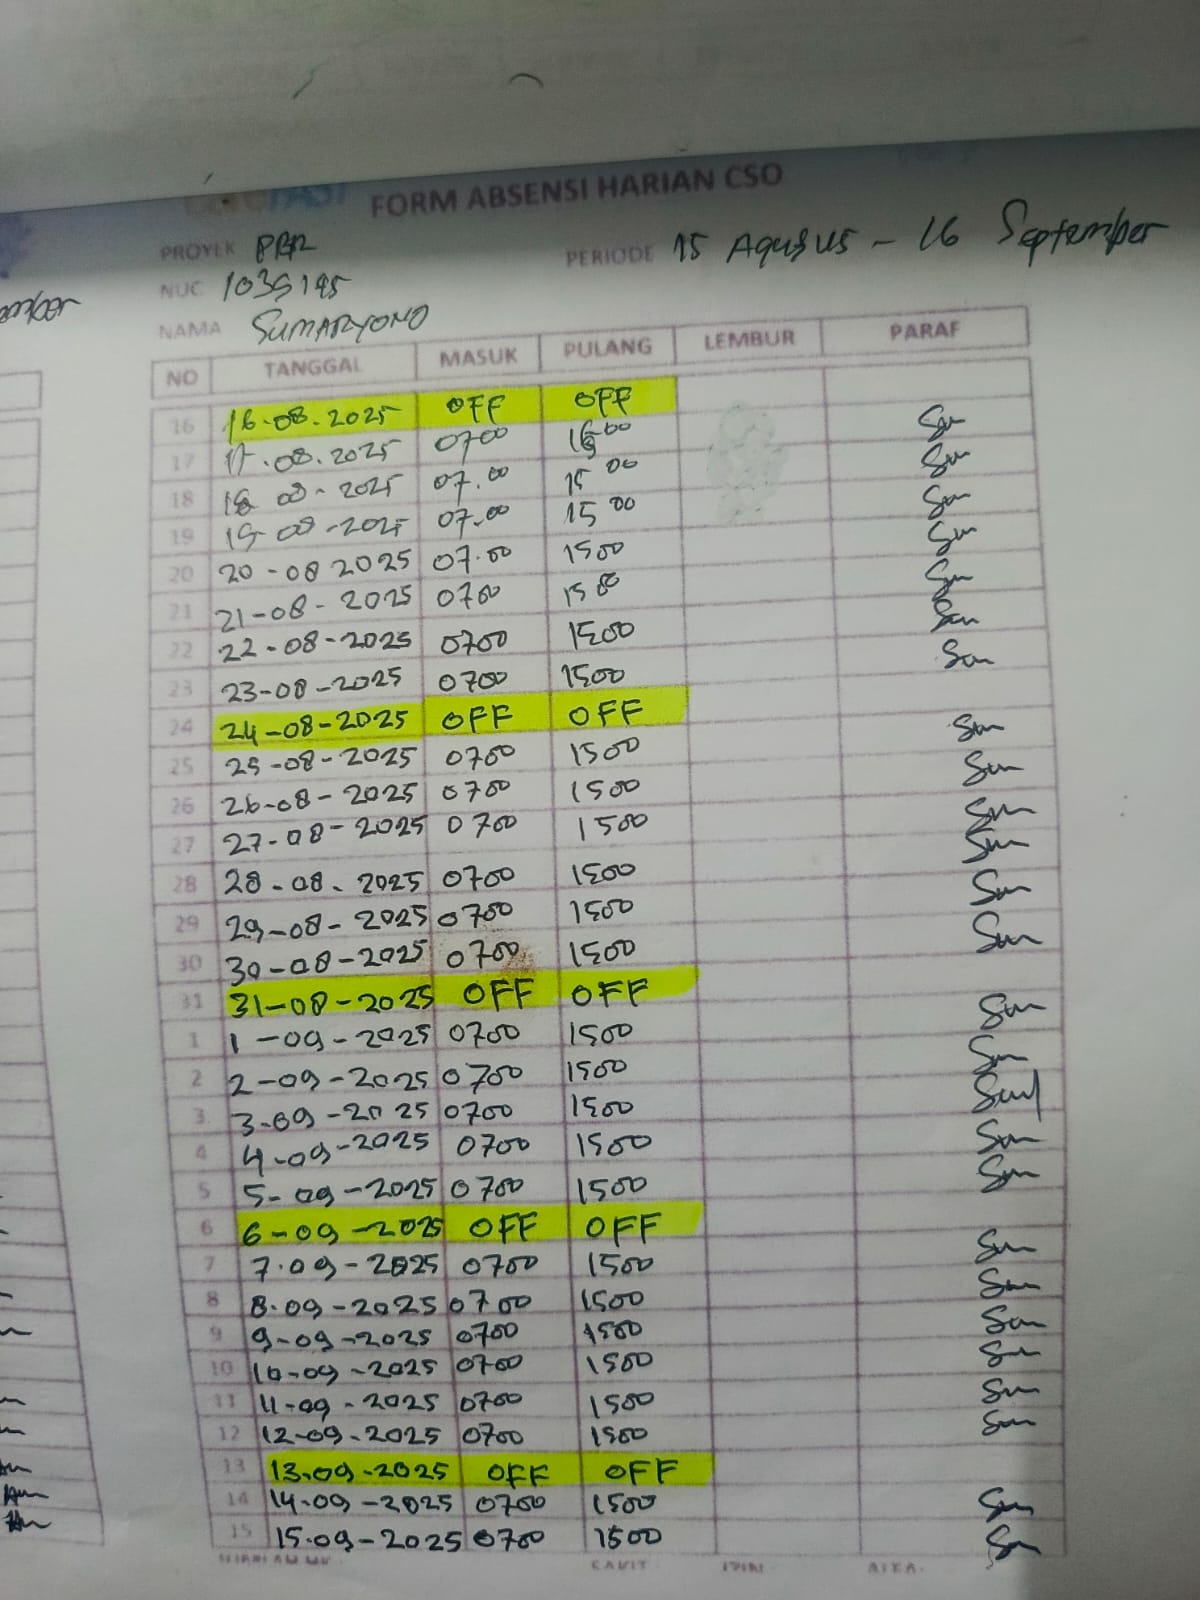 FORM ABSENSI HARIAN CSO
PROYEK PBR
PERIODE 15 Agusus - 16 September
NUC 1039195
NAMA SUMARYONO
NO TANGGAL MASUK PULANG LEMBUR PARAF
16 16.08.2025 OFF OFF
17 17.08.2025 0700 1500
18 18 08 - 2025 07.00 15 00
19 19-08-2025 07.00 15 00
20 20-08 2025 07.00 1500
21 21-08-2025 0700 1500
22 22-08-2025 0700 1500
23 23-08-2025 0700 1500
24 24-08-2025 OFF OFF
25 25-08-2025 0700 1500
26 26-08-2025 0700 1500
27 27-08-2025 0700 1500
28 28-08-2025 0700 1500
29 29-08-2025 0700 1500
30 30-08-2025 0700 1500
31 31-08-2025 OFF OFF
1 1-09-2025 0700 1500
2 2-09-2025 0700 1500
3 3-09-2025 0700 1500
4 4-09-2025 0700 1500
5 5-09-2025 0700 1500
6 6-09-2025 OFF OFF
7 7.09-2025 0700 1500
8 8.09-2025 0700 1500
9 9-09-2025 0700 1500
10 10-09-2025 0700 1500
11 11-09-2025 0700 1500
12 12-09.2025 0700 1500
13 13.09-2025 OFF OFF
14 14-09-2025 0700 1500
15 15.09-2025 0700 1500